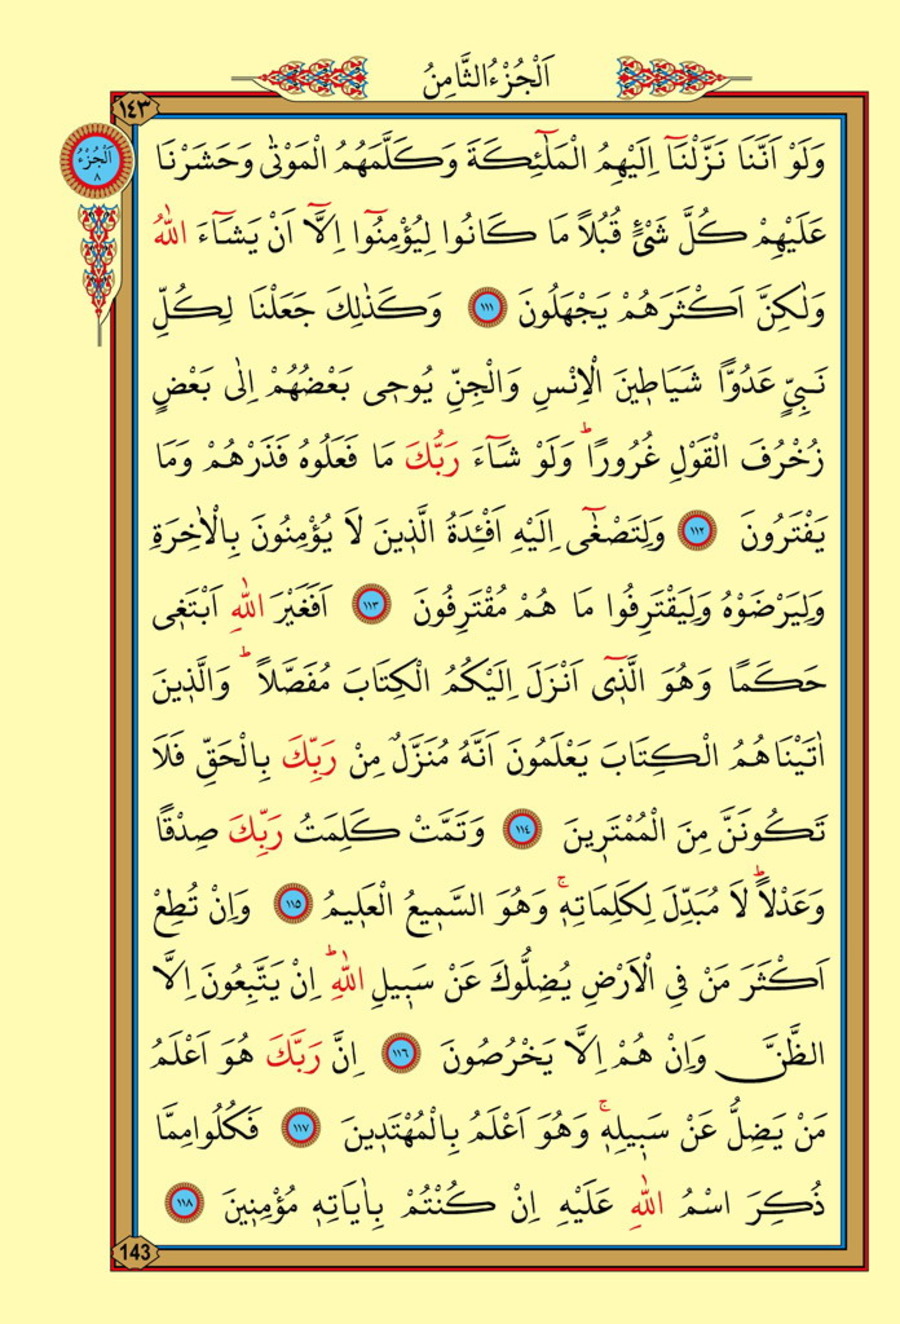 اَلْجُزْءُ الثَّامِنُ
١٤٣
اَلْجُزْءُ
٨
وَلَوْ اَنَّنَا نَزَّلْنَٓا اِلَيْهِمُ الْمَلٰٓئِكَةَ وَكَلَّمَهُمُ الْمَوْتٰى وَحَشَرْنَا
عَلَيْهِمْ كُلَّ شَيْءٍ قُبُلاً مَا كَانُوا لِيُؤْمِنُٓوا اِلَّٓا اَنْ يَشَٓاءَ اللّٰهُ
وَلٰكِنَّ اَكْثَرَهُمْ يَجْهَلُونَ ١١١ وَكَذٰلِكَ جَعَلْنَا لِكُلِّ
نَبِيٍّ عَدُوًّا شَيَاط۪ينَ الْاِنْسِ وَالْجِنِّ يُوح۪ى بَعْضُهُمْ اِلٰى بَعْضٍ
زُخْرُفَ الْقَوْلِ غُرُورًاۜ وَلَوْ شَٓاءَ رَبُّكَ مَا فَعَلُوهُ فَذَرْهُمْ وَمَا
يَفْتَرُونَ ١١٢ وَلِتَصْغٰٓى اِلَيْهِ اَفْـِٔدَةُ الَّذ۪ينَ لَا يُؤْمِنُونَ بِالْاٰخِرَةِ
وَلِيَرْضَوْهُ وَلِيَقْتَرِفُوا مَا هُمْ مُقْتَرِفُونَ ١١٣ اَفَغَيْرَ اللّٰهِ اَبْتَغ۪ى
حَكَمًا وَهُوَ الَّذ۪ٓى اَنْزَلَ اِلَيْكُمُ الْكِتَابَ مُفَصَّلاًۜ وَالَّذ۪ينَ
اٰتَيْنَاهُمُ الْكِتَابَ يَعْلَمُونَ اَنَّهُ مُنَزَّلٌ مِنْ رَبِّكَ بِالْحَقِّ فَلَا
تَكُونَنَّ مِنَ الْمُمْتَر۪ينَ ١١٤ وَتَمَّتْ كَلِمَتُ رَبِّكَ صِدْقًا
وَعَدْلاًۜ لَا مُبَدِّلَ لِكَلِمَاتِه۪ۚ وَهُوَ السَّم۪يعُ الْعَل۪يمُ ١١٥ وَاِنْ تُطِعْ
اَكْثَرَ مَنْ فِي الْاَرْضِ يُضِلُّوكَ عَنْ سَب۪يلِ اللّٰهِۜ اِنْ يَتَّبِعُونَ اِلَّا
الظَّنَّ وَاِنْ هُمْ اِلَّا يَخْرُصُونَ ١١٦ اِنَّ رَبَّكَ هُوَ اَعْلَمُ
مَنْ يَضِلُّ عَنْ سَب۪يلِه۪ۚ وَهُوَ اَعْلَمُ بِالْمُهْتَد۪ينَ ١١٧ فَكُلُوا مِمَّا
ذُكِرَ اسْمُ اللّٰهِ عَلَيْهِ اِنْ كُنْتُمْ بِاٰيَاتِه۪ مُؤْمِن۪ينَ ١١٨
143